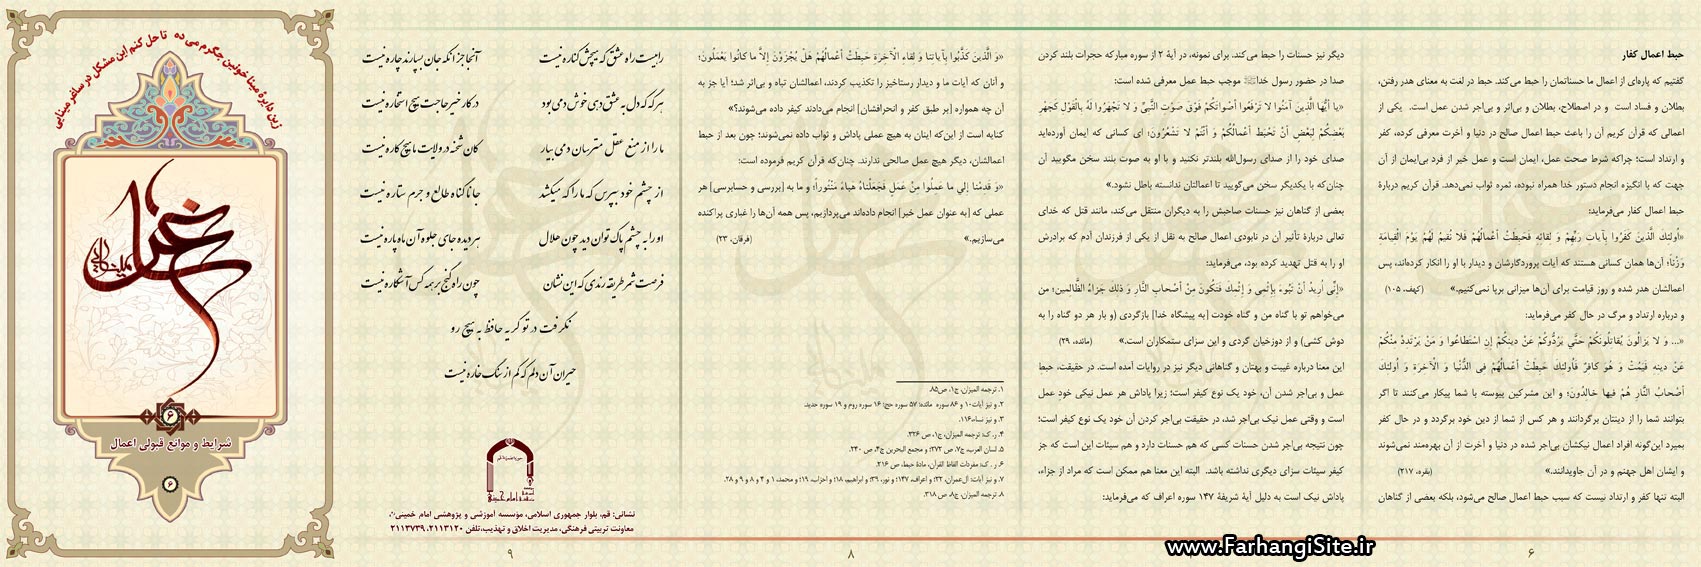 حبط اعمال کفار
گفتیم که پاره‌ای از اعمال ما حسناتمان را حبط می‌کند. حبط در لغت به معنای هدر رفتن،
بطلان و فساد است و در اصطلاح، بطلان و بی‌اثر و بی‌اجر شدن عمل است. یکی از
اعمالی که قرآن کریم آن را باعث حبط اعمال صالح در دنیا و آخرت معرفی کرده، کفر
و ارتداد است؛ چراکه شرط صحت عمل، ایمان است و عمل خیر از فرد بی‌ایمان از آن
جهت که با انگیزه انجام دستور خدا همراه نبوده، ثمره ثواب نمی‌دهد. قرآن کریم دربارهٔ
حبط اعمال کفار می‌فرماید:
«أُولئِكَ الَّذينَ كَفَرُوا بِآياتِ رَبِّهِمْ وَ لِقائِهِ فَحَبِطَتْ أَعْمالُهُمْ فَلا نُقيمُ لَهُمْ يَوْمَ الْقِيامَةِ
وَزْناً؛ آن‌ها همان کسانی هستند که آیات پروردگارشان و دیدار با او را انکار کرده‌اند، پس
اعمالشان هدر شده و روز قیامت برای آن‌ها میزانی برپا نمی‌کنیم.» (کهف، ۱۰۵)
و درباره ارتداد و مرگ در حال کفر می‌فرماید:
«... وَ لا يَزالُونَ يُقاتِلُونَكُمْ حَتَّي يَرُدُّوكُمْ عَنْ دينِكُمْ إِنِ اسْتَطاعُوا وَ مَنْ يَرْتَدِدْ مِنْكُمْ
عَنْ دينِهِ فَيَمُتْ وَ هُوَ كافِرٌ فَأُولئِكَ حَبِطَتْ أَعْمالُهُمْ فِي الدُّنْيا وَ الْآخِرَةِ وَ أُولئِكَ
أَصْحابُ النَّارِ هُمْ فيها خالِدُونَ؛ و این مشرکین پیوسته با شما پیکار می‌کنند تا اگر
بتوانند شما را از دینتان برگردانند و هر کس از شما از دین خود برگردد و در حال کفر
بمیرد این‌گونه افراد اعمال نیکشان بی‌اجر شده در دنیا و آخرت از آن بهره‌مند نمی‌شوند
و ایشان اهل جهنم و در آن جاویدانند.» (بقره، ۲۱۷)
البته تنها کفر و ارتداد نیست که سبب حبط اعمال صالح می‌شود، بلکه بعضی از گناهان
۶
دیگر نیز حسنات را حبط می‌کند. برای نمونه، در آیهٔ ۲ از سوره مبارکه حجرات بلند کردن
صدا در حضور رسول خدا موجب حبط عمل معرفی شده است:
«يا أَيُّهَا الَّذينَ آمَنُوا لا تَرْفَعُوا أَصْواتَكُمْ فَوْقَ صَوْتِ النَّبِيِّ وَ لا تَجْهَرُوا لَهُ بِالْقَوْلِ كَجَهْرِ
بَعْضِكُمْ لِبَعْضٍ أَنْ تَحْبَطَ أَعْمالُكُمْ وَ أَنْتُمْ لا تَشْعُرُونَ؛ ای کسانی که ایمان آورده‌اید
صدای خود را از صدای رسول‌الله بلندتر نکنید و با او به صوت بلند سخن مگویید آن
چنان‌که با یکدیگر سخن می‌گویید تا اعمالتان ندانسته باطل نشود.»
بعضی از گناهان نیز حسنات صاحبش را به دیگران منتقل می‌کند، مانند قتل که خدای
تعالی دربارهٔ تأثیر آن در نابودی اعمال صالح به نقل از یکی از فرزندان آدم که برادرش
او را به قتل تهدید کرده بود، می‌فرماید:
«إِنِّي أُريدُ أَنْ تَبُوءَ بِإِثْمي وَ إِثْمِكَ فَتَكُونَ مِنْ أَصْحابِ النَّارِ وَ ذلِكَ جَزاءُ الظَّالِمينَ؛ من
می‌خواهم تو با گناه من و گناه خودت [به پیشگاه خدا] بازگردی (و بار هر دو گناه را به
دوش کشی) و از دوزخیان گردی و این سزای ستمکاران است.» (مائده، ۲۹)
این معنا درباره غیبت و بهتان و گناهانی دیگر نیز در روایات آمده است. در حقیقت، حبط
عمل و بی‌اجر شدن آن، خود یک نوع کیفر است؛ زیرا پاداش هر عمل نیکی خودِ عمل
است و وقتی عمل نیک بی‌اجر شد، در حقیقت بی‌اجر کردن آن خود یک نوع کیفر است؛
چون نتیجه بی‌اجر شدن حسنات کسی که هم حسنات دارد و هم سیئات این است که جز
کیفر سیئات سزای دیگری نداشته باشد. البته این معنا هم ممکن است که مراد از جزاء،
پاداش نیک است به دلیل آیهٔ شریفهٔ ۱۴۷ سوره اعراف که می‌فرماید:
«وَ الَّذينَ كَذَّبُوا بِآياتِنا وَ لِقاءِ الْآخِرَةِ حَبِطَتْ أَعْمالُهُمْ هَلْ يُجْزَوْنَ إِلاَّ ما كانُوا يَعْمَلُونَ؛
و آنان که آیات ما و دیدار رستاخیز را تکذیب کردند، اعمالشان تباه و بی‌اثر شد؛ آیا جز به
آن چه همواره [بر طبق کفر و انحرافشان] انجام می‌دادند کیفر داده می‌شوند؟»
کنایه است از این‌که اینان به هیچ عملی پاداش و ثواب داده نمی‌شوند؛ چون بعد از حبط
اعمالشان، دیگر هیچ عمل صالحی ندارند. چنان‌که قرآن کریم فرموده است:
«وَ قَدِمْنا إِلي ما عَمِلُوا مِنْ عَمَلٍ فَجَعَلْناهُ هَباءً مَنْثُوراً؛ و ما به [بررسی و حسابرسی] هر
عملی که [به عنوان عمل خیر] انجام داده‌اند می‌پردازیم، پس همه آن‌ها را غباری پراکنده
می‌سازیم.» (فرقان، ۲۳)
۱. ترجمه المیزان، ج۱، ص۸۵.
۲. و نیز آیات۱۰ و ۸۶ سوره مائده؛ ۵۷ سوره حج؛ ۱۶ سوره روم و ۱۹ سوره حدید.
۳. و نیز نساء،۱۱۶.
۴. ر. ک: ترجمه المیزان، ج۱، ص ۳۲۶.
۵. لسان العرب، ج۷، ص ۲۷۲؛ و مجمع البحرین ج۴، ص ۲۴۰.
۶. ر . ک: مفردات الفاظ القرآن، مادهٔ حبط، ص ۲۱۶.
۷. و نیز آیات: آل‌عمران، ۲۲؛ و اعراف، ۱۴۷؛ و نور، ۳۹؛ و ابراهیم، ۱۸؛ و احزاب، ۱۹؛ و محمد، ۱ و ۴ و ۸ و ۹ و ۲۸.
۸. ترجمه المیزان، ج۸، ص ۳۱۸.
۸
راهیست راه عشق که هیچش کناره نیست
آنجا جز آنکه جان بسپارند چاره نیست
هرگه که دل به عشق دهی خوش دمی بود
در کار خیر حاجت هیچ استخاره نیست
ما را ز منع عقل مترسان و می بیار
کان شحنه در ولایت ما هیچ کاره نیست
از چشم خود بپرس که ما را که میکشد
جانا گناه طالع و جرم ستاره نیست
او را به چشم پاک توان دید چون هلال
هر دیده جای جلوه آن ماه پاره نیست
فرصت شمر طریقه رندی که این نشان
چون راه گنج بر همه کس آشکاره نیست
نگرفت در تو گریه حافظ به هیچ رو
حیران آن دلم که کم از سنگ خاره نیست
نشانی: قم، بلوار جمهوری اسلامی، مؤسسه آموزشی و پژوهشی امام خمینی
معاونت تربیتی فرهنگی، مدیریت اخلاق و تهذیب،تلفن ۲۱۱۳۱۲۰، ۲۱۱۳۷۳۹
۹
زین دایرهٔ مینا خونین جگرم می ده تا حل کنم این مشکل در ساغر مینایی
۶
شرایط و موانع قبولی اعمال
۶
www.FarhangiSite.ir